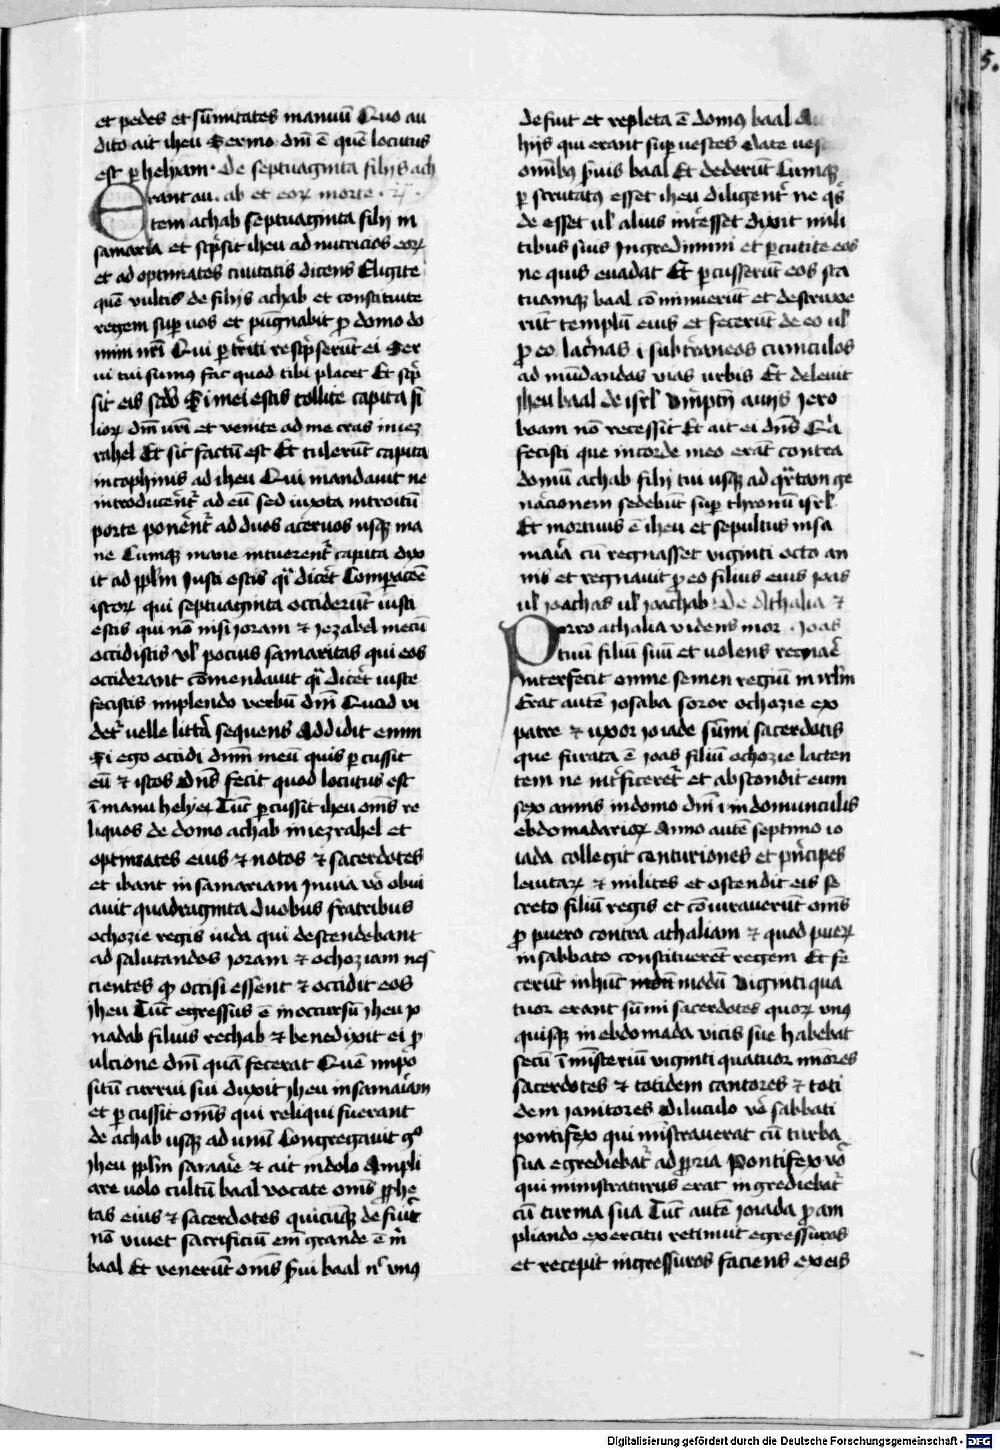 et pedes et sūmitates manuū Quo au
dito ait iheu Sermo dnī ē quē locutus
est p helyam · De septuaginta filijs ach
Erant au . ab et eoꝝ morte ·
tem achab septuaginta filij in
samaria et scpsit iheu ad nutricios eoꝝ
et ad optimates ciuitatis dicens Eligite
quē vultis de filijs achab et constituite
regem sup uos et pūgnabit ꝓ domo do
mini nrī Qui ꝑ triti rescpserūt ei Ser
ui tui sumꝰ fac quod tibi placet Et scp
sit eis scdō Si mei estis tollite capita fi
lioꝝ dnī urī et venite ad me cras in iez
rahel Et sic factū est Et tulerūt capita
in cophinis ad iheu Qui mandauit ne
introducent ad eū sed iuxta introitū
porte ponent ad duos aceruos usqꝫ ma
ne Cumqꝫ mane intuerent capita dix
it ad pplm Justi estis qͥ dicet Compacēē
istoꝝ qui septuaginta occiderūt iusti
estis qui nō nisi joram ⁊ jezabel mecū
occidistis vl pocius samaritas qui eos
occiderant cōmendauit qͥ dicet iuste
fecistis implendo verbū dnī Quid vi
det uelle littera sequens Addidit enim
Si ego occidi dnm meū quis ꝑcussit
eū ⁊ istos Dns fecit quod locutus est
ī manu helyeꝝ Tūc ꝑcussit iheu oms re
liquos de domo achab in iezrahel et
optimates eius ⁊ notos ⁊ sacerdotes
et ibant in samariam In uia vō obui
auit quadraginta duobus fratribus
ochozie regis iuda qui descendebant
ad salutandos joram ⁊ ochoziam nes
cientes qꝫ occisi essent ⁊ occidit eos
Jheu Tūc egressus ē in occursū Jheu jo
nadab filius rechab ⁊ benedixit ei ꝓ
ulcione dnī quā fecerat Quē impo
sitū currui sui duxit Jheu in samariam
et ꝑcussit oms qui reliqui fuerant
de achab usqꝫ ad unū Congregauit gͦ
Jheu pplm samarie ⁊ ait in dolo Ampli
are uolo cultū baal vocate oms pphe
tas eius ⁊ sacerdotes quicūqꝫ defuit
nō viuet sacrificiū em grande ē m
baal Et venerūt oms sui baal nͨ vnꝰ
defuit et repleta ē domꝰ baal
hijs qui erant sup uestes Date
omībꝫ suis baal Et dederūt Cumqꝫ
ꝑ scrutatꝰ esset iheu diligent ne qs
de esset ul alius intesset dixit mili
tibus suis Ingredimini et ꝑcutite eos
ne quis euadat Et ꝑcusserūt eos sta
tuamqꝫ baal cōminuerūt et destruxe
rūt templū eius et fecerūt de eo ul
ꝓ eo latrinas ⁊ subtraneos cuniculos
ad mūdandas vias urbis Et deleuit
Jheu baal de isrl Vmptn auijs jero
boam nō recessit Et ait ei dns Qa
fecisti que in corde meo erāt contra
domū achab filij tui usqꝫ ad qrtam ge
nacionem sedebūt sup thronū isrl
Et mortuus ē iheu et sepultus in sa
maria cū regnasset viginti octo an
nis et regnauit ꝓ eo filius eius joas
ul joachas ul joachab De Athalia ⁊
Porro athalia videns mor . joas
tuū filiū suū et uolens regnare
interfecit omne semen regiū in irlm
Erat autē josaba soror ochozie ex
patre ⁊ uxor joiade sūmi sacerdotis
que furata ē joas filiū ochozie lacten
tem ne intficeret et abscondit eum
sex annis in domo dnī ī in domunculis
ebdomadarioꝝ Anno autē septimo io
iada collegit centuriones et pncipes
leuitaꝝ ⁊ milites et ostendit eis se
creto filiū regis et cōiurauerūt oms
ꝓ puero contra athaliam ⁊ quod pueꝝ
in sabbato constituerēt regem Et fe
cerūt in hūc modū Viginti qua
tuor erant sūmi sacerdotes quoꝝ vnꝰ
quisqꝫ in ebdomada vicis sue habebat
secū ī misteriū viginti quatuor miores
sacerdotes ⁊ totidem cantores ⁊ toti
dem janitores Diluculo vō sabbati
pontifex qui mistrauerat cū turba
sua egrediebat ad ꝓpria Pontifex vō
qui ministraturus erat ingrediebat
cū turma sua Tūc autē joiada ꝓ am
pliando exercitu retinuit egressuros
et recepit ingressuros faciens ex eis
5.
Digitalisierung gefördert durch die Deutsche Forschungsgemeinschaft - DFG